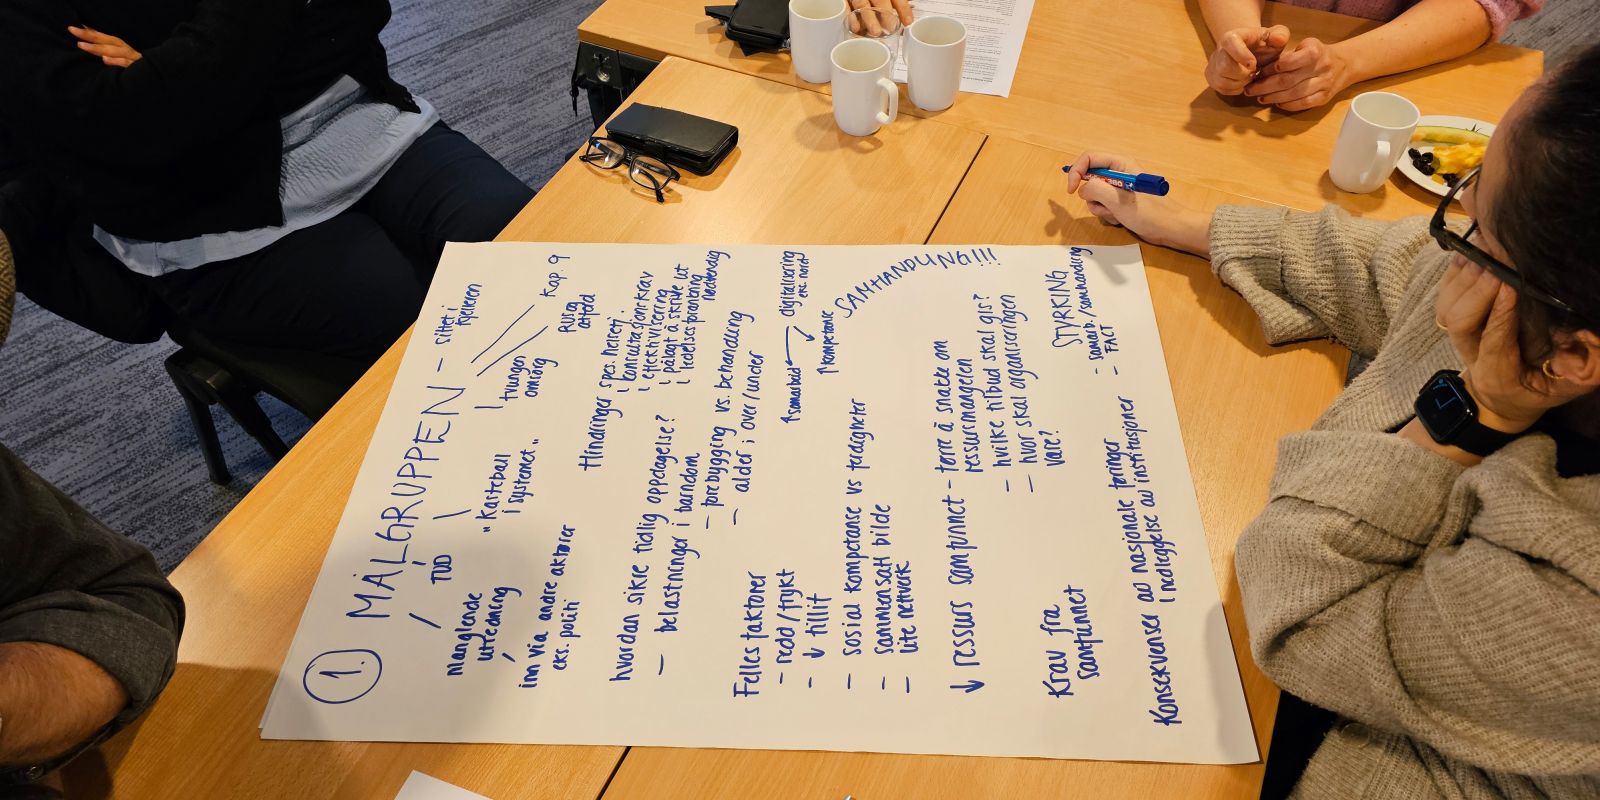 1. MÅLGRUPPEN - sittet i
kjelleren
manglende
utredning
TUD
"Kasteball
i systemet"
tvungen
omsorg
Kap. 9
RUS og
atferd
inn via andre aktører
eks. politi
Hindringer spes. helset.
konsultasjonkrav
effektivisering
pålagt å skrive ut
ledelsesforankring
nødvendig
hvordan sikre tidlig oppdagelse?
- belastninger i barndom
- forebygging vs. behandling
- alder i over/under
Felles faktorer
- redd/frykt
- ↓ tillit
- sosial kompetanse vs ferdigheter
- sammensatt bilde
- lite nettverk
↑samarbeid
digitalisering
eks. nord
↑kompetanse
SAMHANDLING!!!
↓ ressurs samfunnet - tørre å snakke om
ressursmangelen
- hvilke tilbud skal gis?
- hvor skal organiseringen
være?
Krav fra
samfunnet
STYRING
- samarb./samhandling
- FACT
Konsekvenser av nasjonale føringer
nedleggelse av institusjoner
380